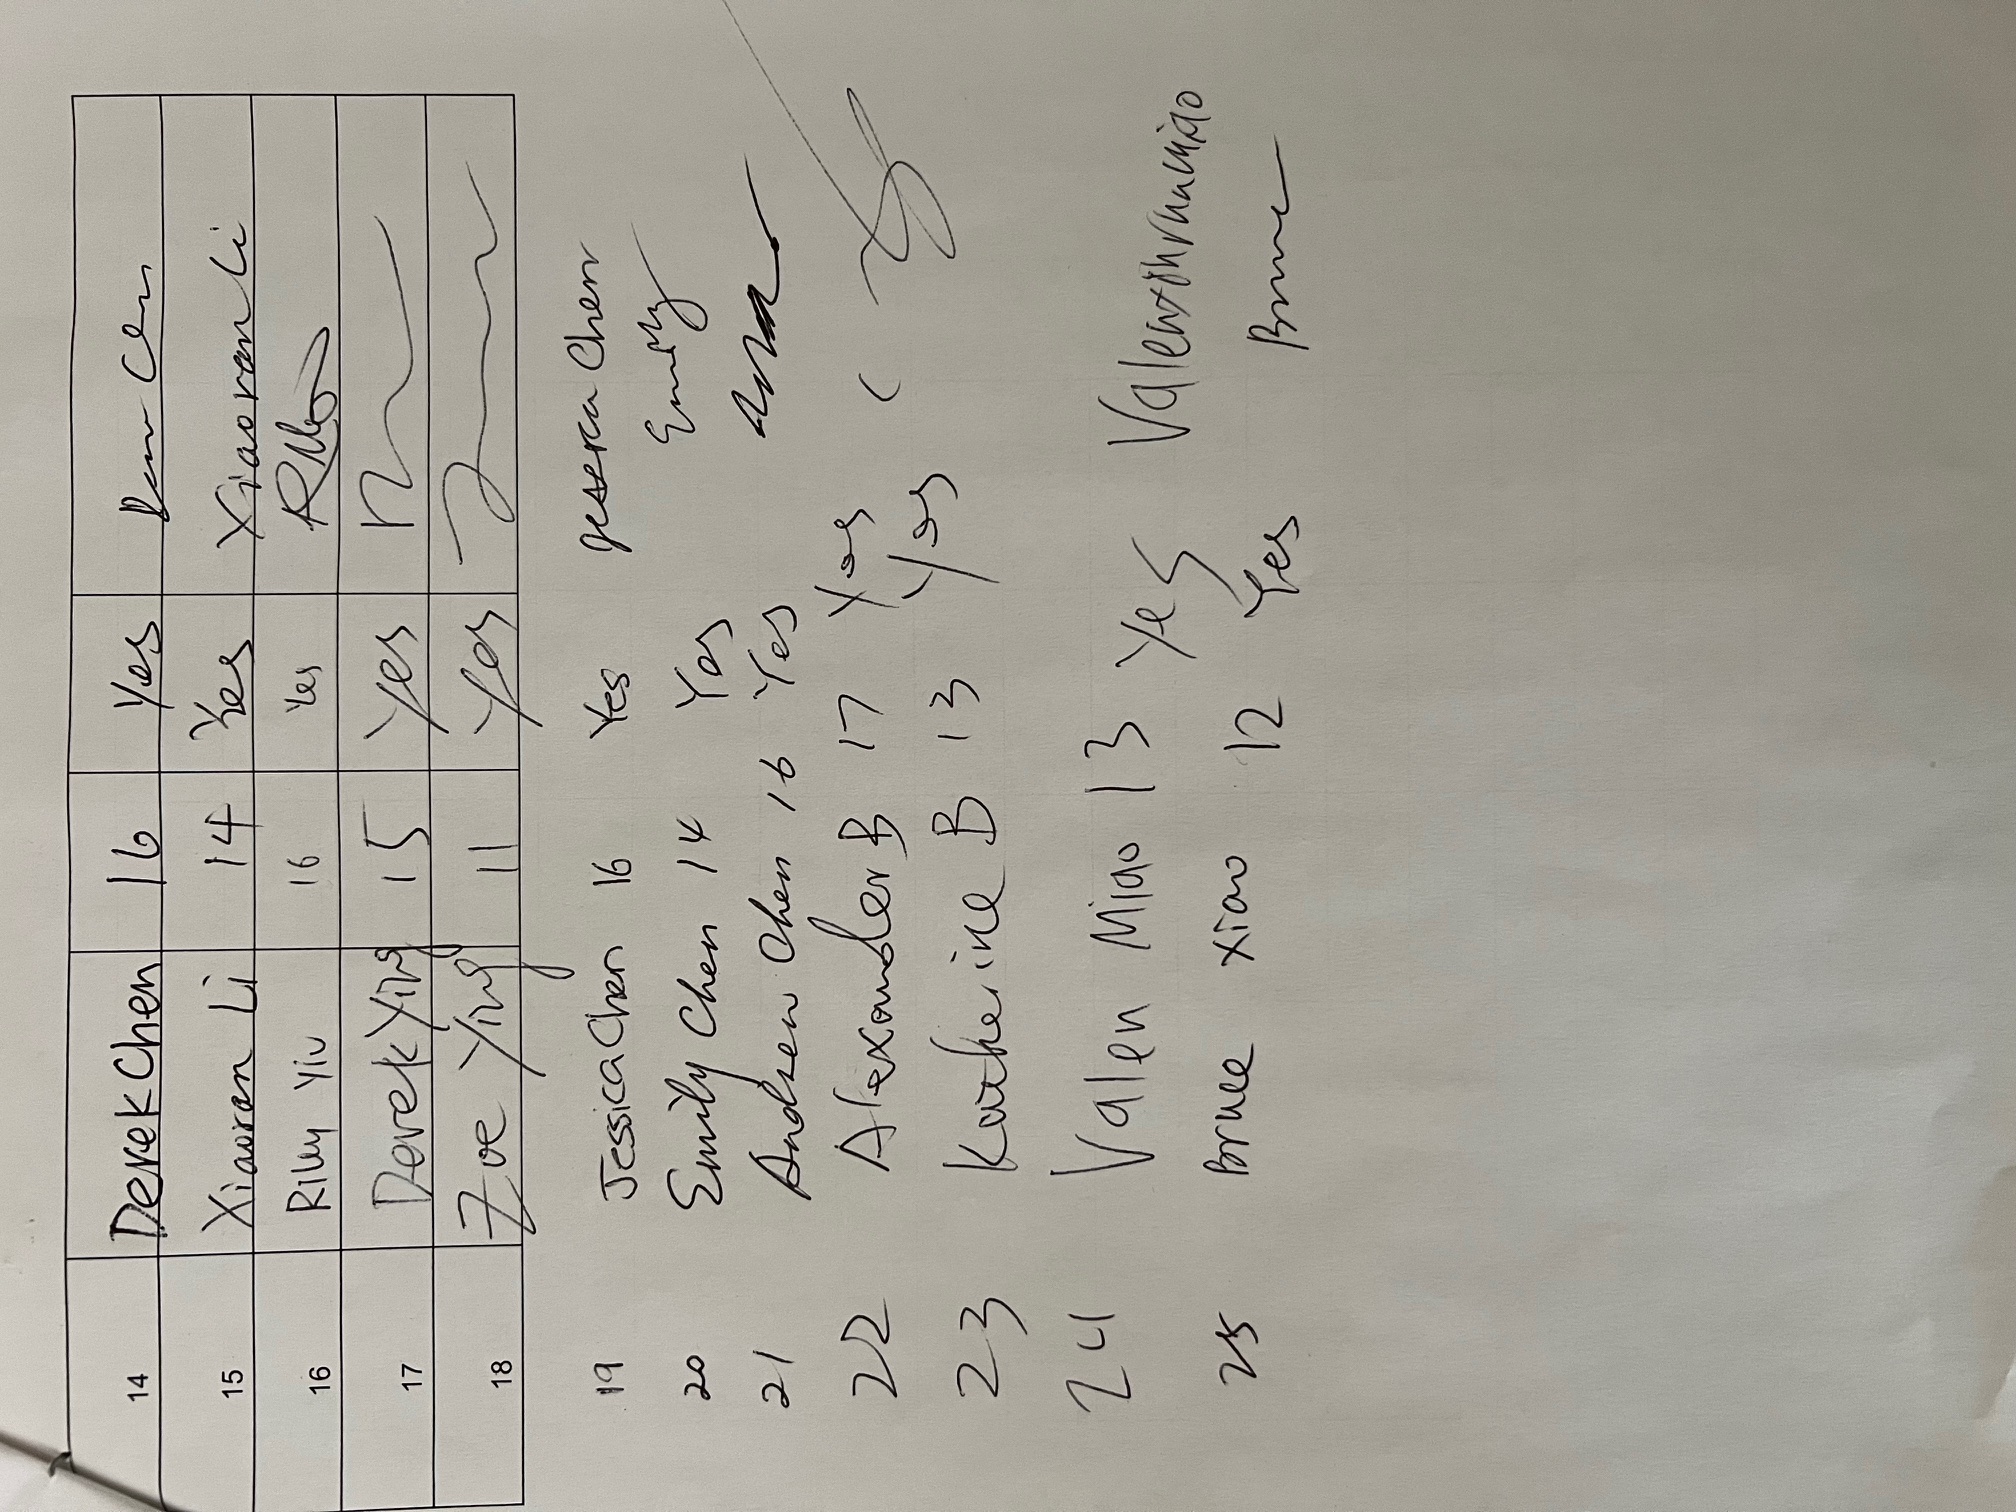 14 Derek Chen 16 Yes
15 Xiaoran Li 14 Yes Xiaoran Li
16 Riley Yiu 16 Yes
17 Derek Ying 15 Yes
18 Zoe Ying 11 Yes
19 Jessica Chen 16 Yes Jessica Chen
20 Emily Chen 14 Yes Emily
21 Andrew Chen 16 Yes
22 Alexander B 17 Yes
23 Katherine B 13 Yes
24 Valen Miao 13 Yes
25 Bruce Xiao 12 Yes Bruce